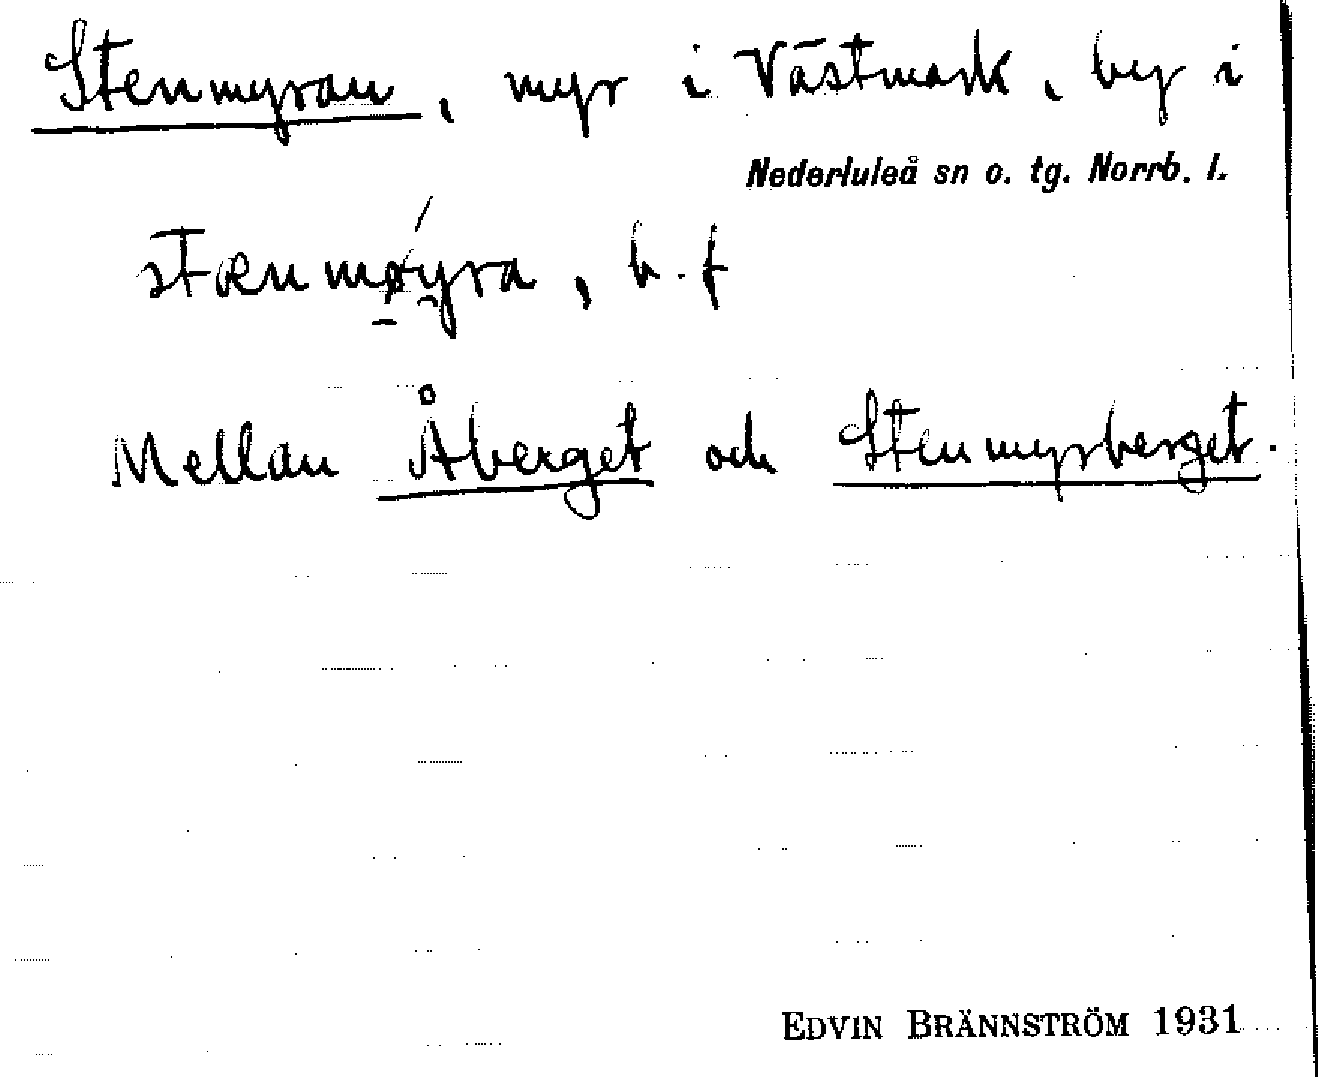 Stenmyran, myr i Västmark, by i
Nederluleå sn o. tg. Norrb. l.
stænmøyra, b. f
Mellan Åberget och Stenmyrberget.
EDVIN BRÄNNSTRÖM 1931